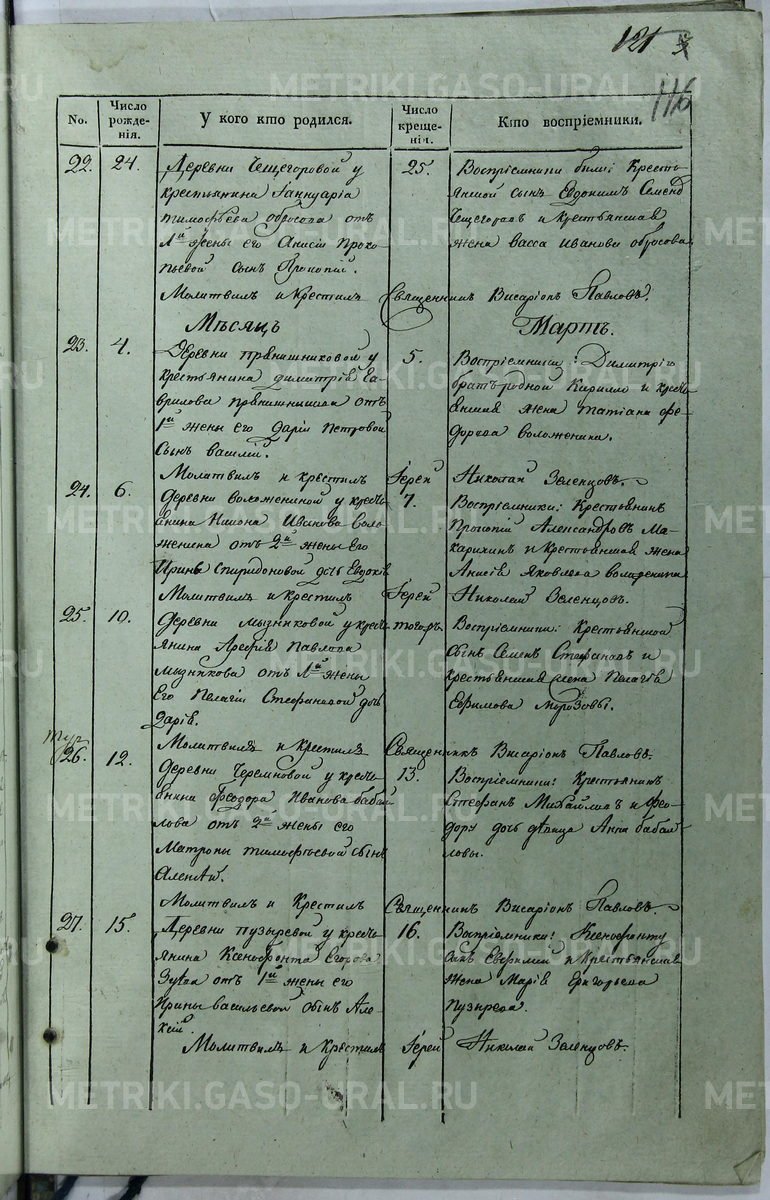 121
116
No.
Число рожде-нія.
У кого кто родился.
Число креще-нія.
Кто воспріемники.
22. 24.
Деревни Чещегоровой у
крестьянина Іаннуарія
тимофѣева обросова отъ
1й жены его Анисіи Проко-
пьевой сынъ Прокопій.
25.
Воспріемники были Кресть-
янской сынъ Евдокимъ Семено
Чещегоровъ и крестьянская
жена васса иванова обросова
Молитвилъ и Крестилъ Священникъ Висаріонъ Павловъ.
Мѣсяцъ Мартъ.
23. 4.
Деревни прянишниковой у
крестьянина димитрія га-
врилова прянишникова отъ
1й жены его Даріи Петровой
Сынъ василій.
5.
Воспріемники: Димитрію
братъ родной Кириллъ и кресть
янская жена татіана фе-
дорова воложенина.
Молитвилъ и крестилъ Іерей Николай Зеленцовъ.
24. 6.
Деревни воложениной у кресть
янина Иванова воло
женина отъ 2й жены его
Ирины спиридоновой дочь Евдокія
7.
Воспріемники: Крестьянинъ
Прокопій Александровъ Ма-
карихинъ и Крестьянская жена
Анисія Яковлева
Молитвилъ и Крестилъ Іерей Николай Зеленцовъ.
25. 10.
Деревни Мызниковой у кресть
янина Арефія Павлова
мызникова отъ 1й жены
Его Пелагіи Стефановой дочь
Дарія.
тогоръ.
Воспріемники: Крестьянской
Сынъ Семенъ Стефановъ и
крестьянская жена Пелагія
Ефимова Морозовы.
Молитвилъ и Крестилъ Священникъ Висаріонъ Павловъ.
26. 12.
Деревни Черемновой у кресть
янина феодора Иванова бабай
лова отъ 2й жены его
Матроны тимофѣевой сынъ
Алексѣй.
13.
Воспріемники: Крестьянинъ
Стефанъ Михайловъ и фео-
дору дочь дѣвица Анна бабай
ловы.
Молитвилъ и Крестилъ Священникъ Висаріонъ Павловъ.
27. 15.
Деревни пузыревой у кресть
янина Ксенофонта Егорова
Зуева отъ 1й жены его
Ирины васильевой сынъ Але-
ксій.
16.
Воспріемники: Ксенофонту
сынъ Евфимій и крестьянская
жена Марія Григорьева
Пузырева.
Молитвилъ и Крестилъ Іерей Николай Зеленцовъ.
METRIKI.GASO-URAL.RU